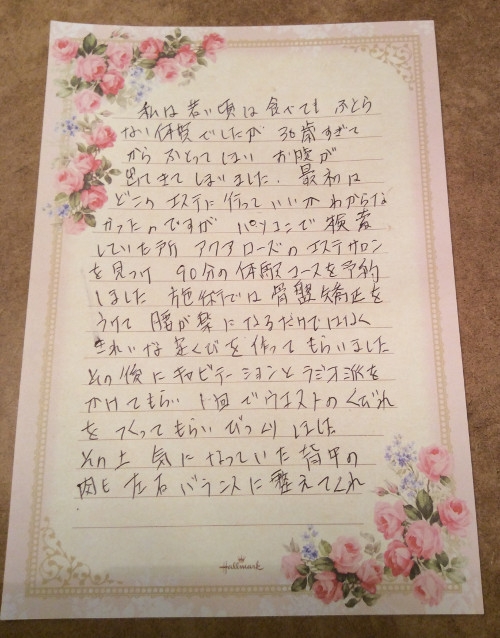 私は若い頃は食べても ふとら
ない体質でしたが 30歳すぎて
から ふとってしまい お腹が
出てきてしまいました。最初は
どこの エステに 行って いいか わからな
かったのですが パソコンで 検索
していた所 アクアローズの エステサロン
を見つけ 90分の 体験コースを予約
しました 施術では 骨盤矯正を
うけて 腰が楽になるだけではなく
きれいな 足くびを 作って もらいました
その後に キャビテーションと ラジオ派を
かけてもらい 1回で ウエストの くびれ
を つくって もらい びっくり しました
その上 気に なっていた 背中の
肉も 左右 バランスに 整えてくれ
Hallmark